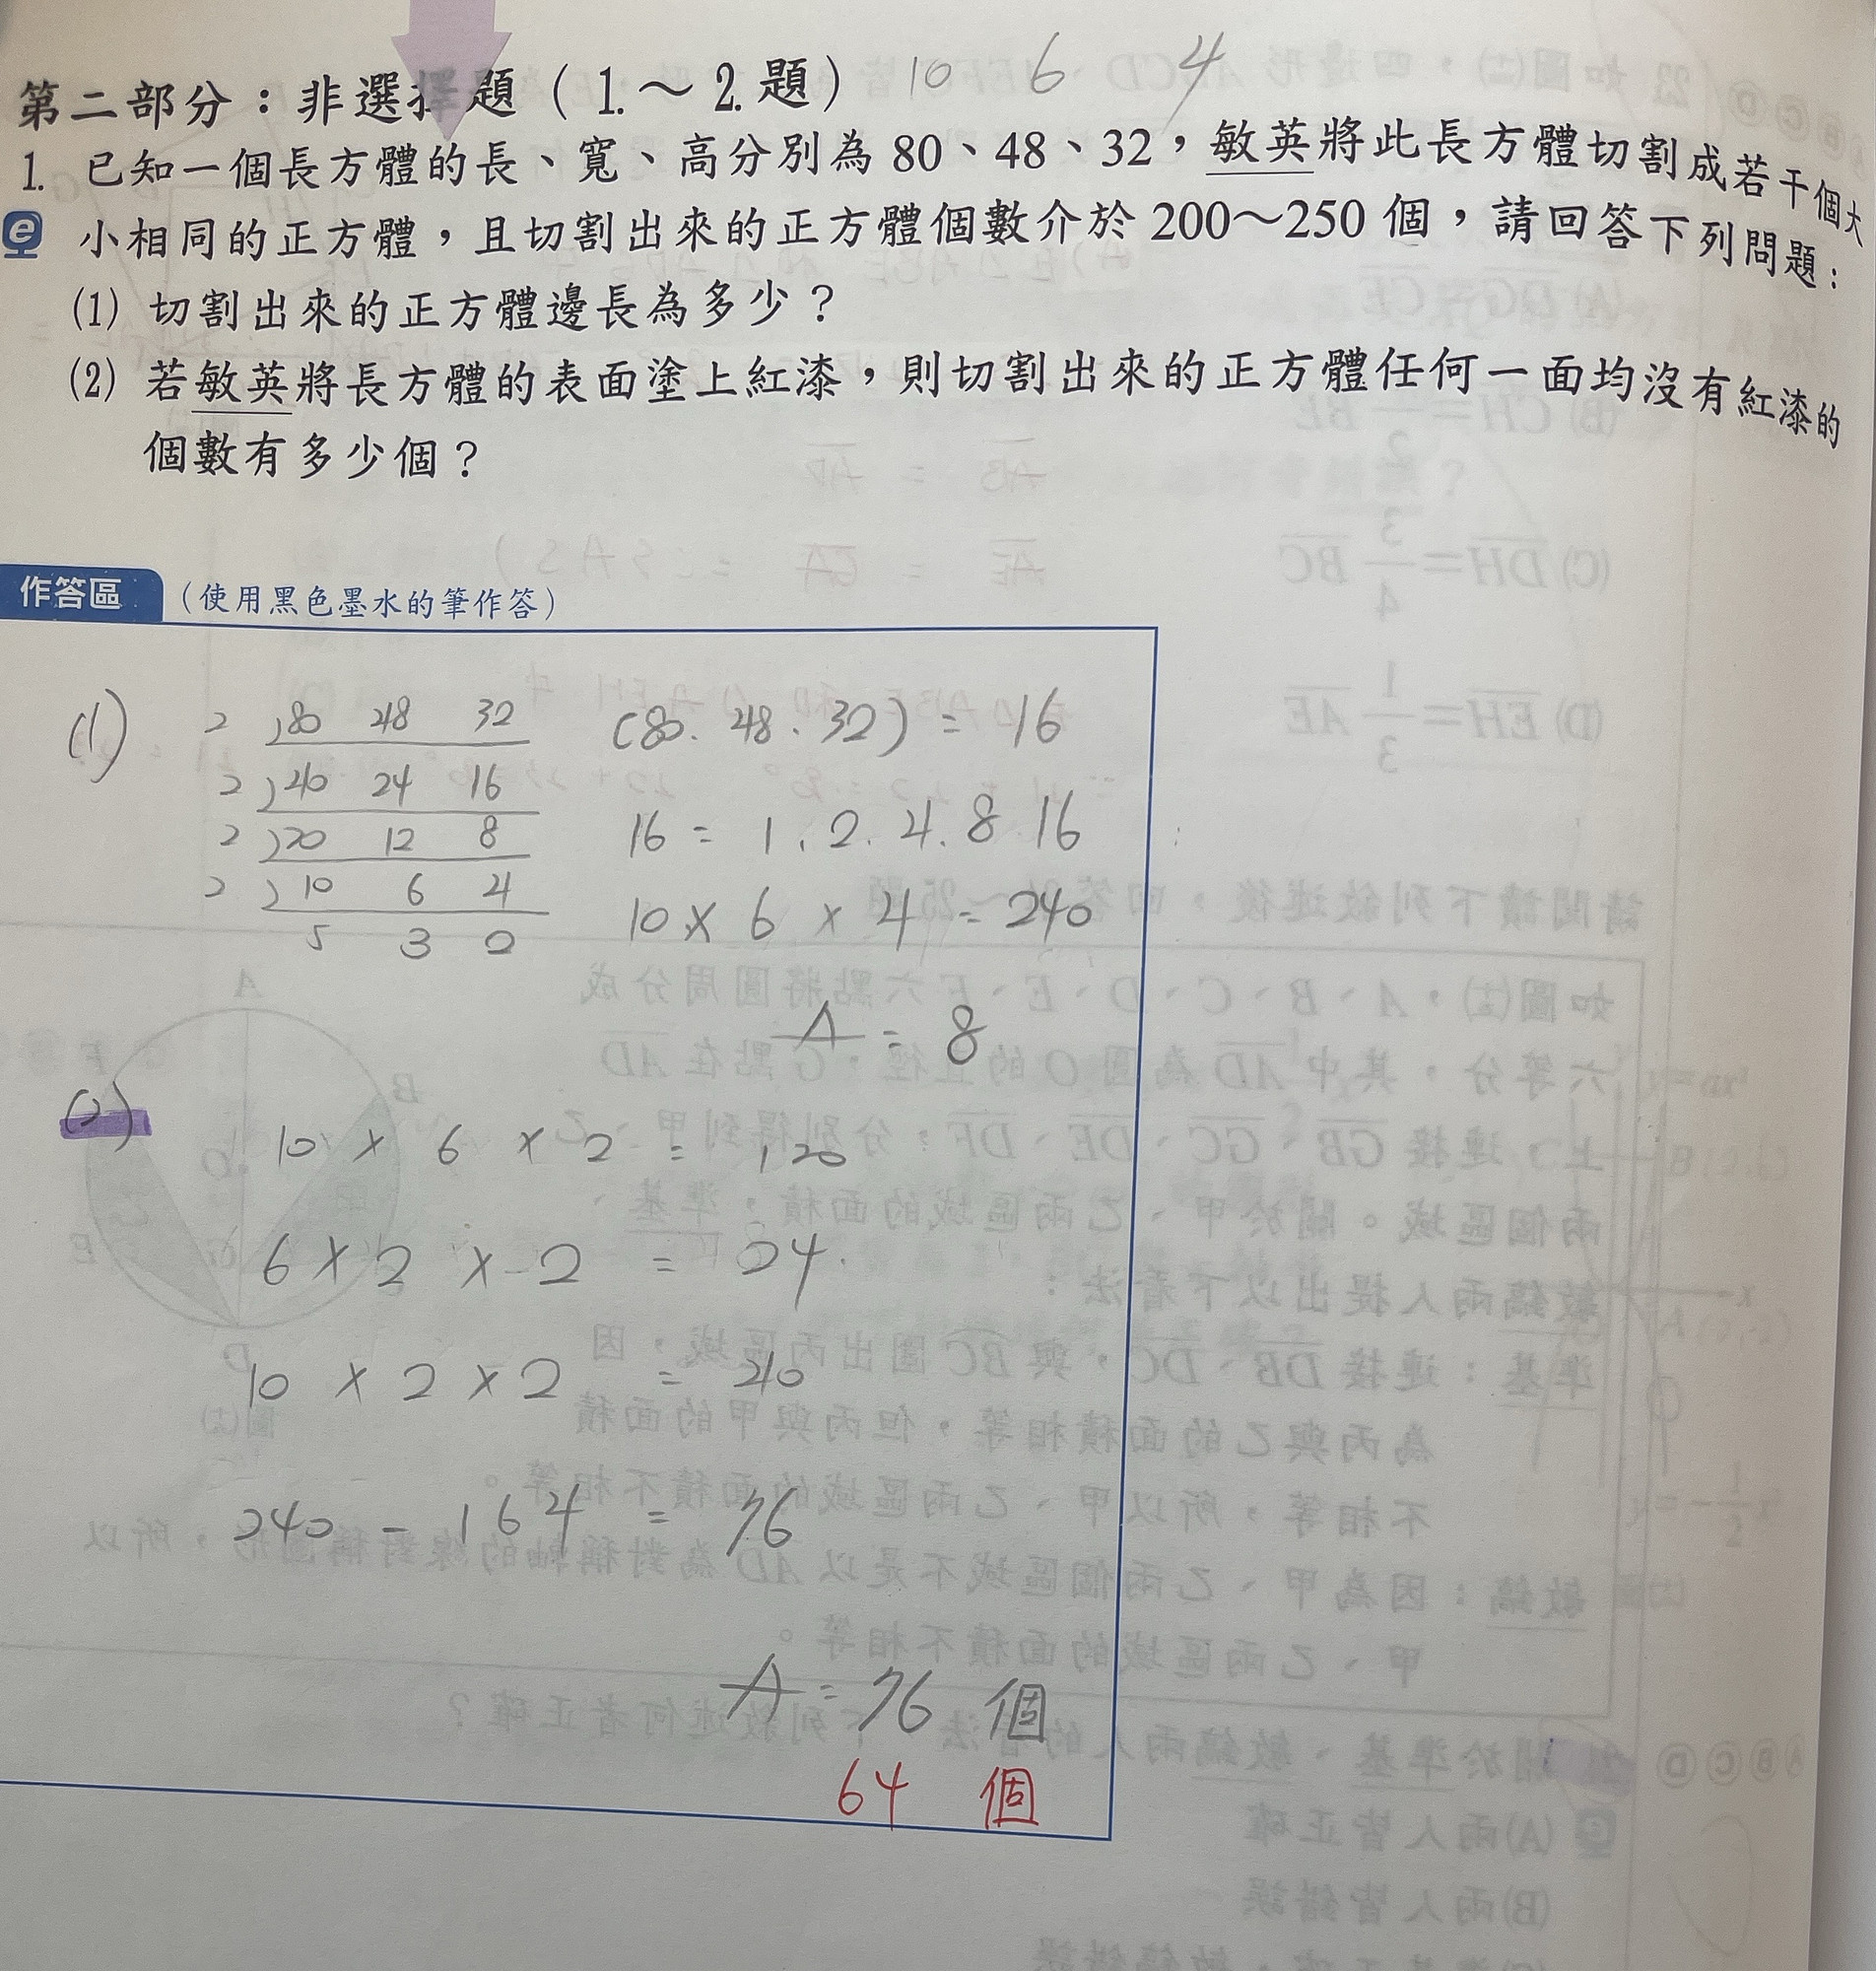 第二部分：非選擇題（1.～2.題） 10 6 4
1. 已知一個長方體的長、寬、高分別為 80、48、32，敏英將此長方體切割成若干個大
小相同的正方體，且切割出來的正方體個數介於 200～250 個，請回答下列問題：
(1) 切割出來的正方體邊長為多少？
(2) 若敏英將長方體的表面塗上紅漆，則切割出來的正方體任何一面均沒有紅漆的
個數有多少個？
作答區 （使用黑色墨水的筆作答）
(1) 2 )80 48 32 (80. 48. 32) = 16
2 )40 24 16
2 )20 12 8 16 = 1. 2. 4. 8 16
2 )10 6 4
5 3 2 10 × 6 × 4 = 240
A = 8
(2)
10 × 6 × 2 = 120
6 × 2 × 2 = 24
10 × 2 × 2 = 40
240 - 164 = 76
A = 76 個
64 個